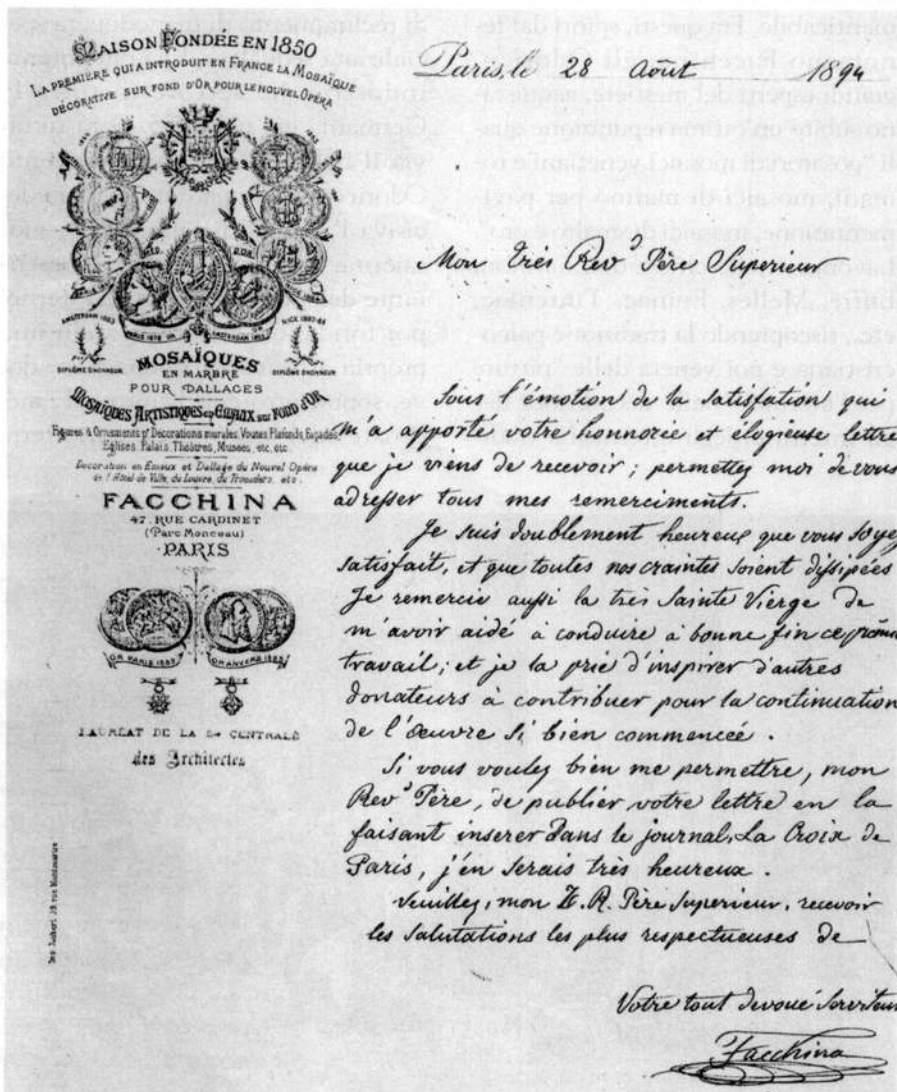 MAISON FONDÉE EN 1850
LA PREMIÈRE QUI A INTRODUIT EN FRANCE LA MOSAÏQUE
DÉCORATIVE SUR FOND D'OR POUR LE NOUVEL OPÉRA
AMSTERDAM 1883
PARIS 1878 OR
AMSTERDAM 1883
NICE 1883-84
DIPLÔME D'HONNEUR
DIPLÔME D'HONNEUR
MOSAÏQUES
EN MARBRE
POUR DALLAGES
MOSAIQUES ARTISTIQUES en EMAUX sur FOND D'OR
Figures & Ornements pr Decorations murales, Voutes, Plafonds, Façades,
Eglises, Palais, Théâtres, Musées, etc. etc.
Decoration en Emaux et Dallage du Nouvel Opéra
de l'Hôtel de Ville, du Louvre, du Trocadéro, etc.
FACCHINA
47, RUE CARDINET
(Parc Monceau)
PARIS
OR PARIS 1889
OR ANVERS 1885
LAURÉAT DE LA Sté CENTRALE
des Architectes
Paris, le 28 Août 1894
Mon Très Revd Père Superieur
Sous l'émotion de la satisfation qui
m'a apporté votre honnorée et élogieuse lettre
que je viens de recevoir; permettez moi de vous
adresser tous mes remerciments.
Je suis doublement heureux que vous soyez
satisfait, et que toutes nos craintes soient dissipées
Je remercie aussi la très Sainte Vierge de
m'avoir aidé à conduire à bonne fin ce
travail; et je la prie d'inspirer d'autres
donateurs à contribuer pour la continuation
de l'œuvre si bien commencée.
Si vous voulez bien me permettre, mon
Revd Père, de publier votre lettre en la
faisant inserer dans le journal, La Croix de
Paris, j'en serais très heureux.
Veuillez, mon T. R. Père Superieur, recevoir
les salutations les plus respectueuses de
Votre tout devoué Serviteur
Facchina